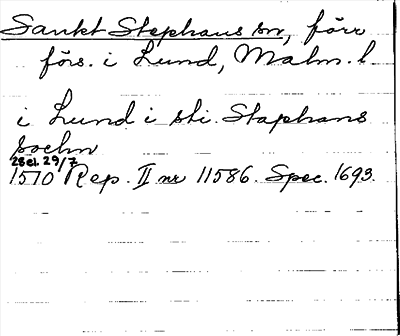 Sankt Stephans sn, förr
förs. i Lund, Malm. l.
i Lund i sti. Staphans
sochn
28 el. 29/7
1510 Rep. II nr 11586. Spec. 1693.